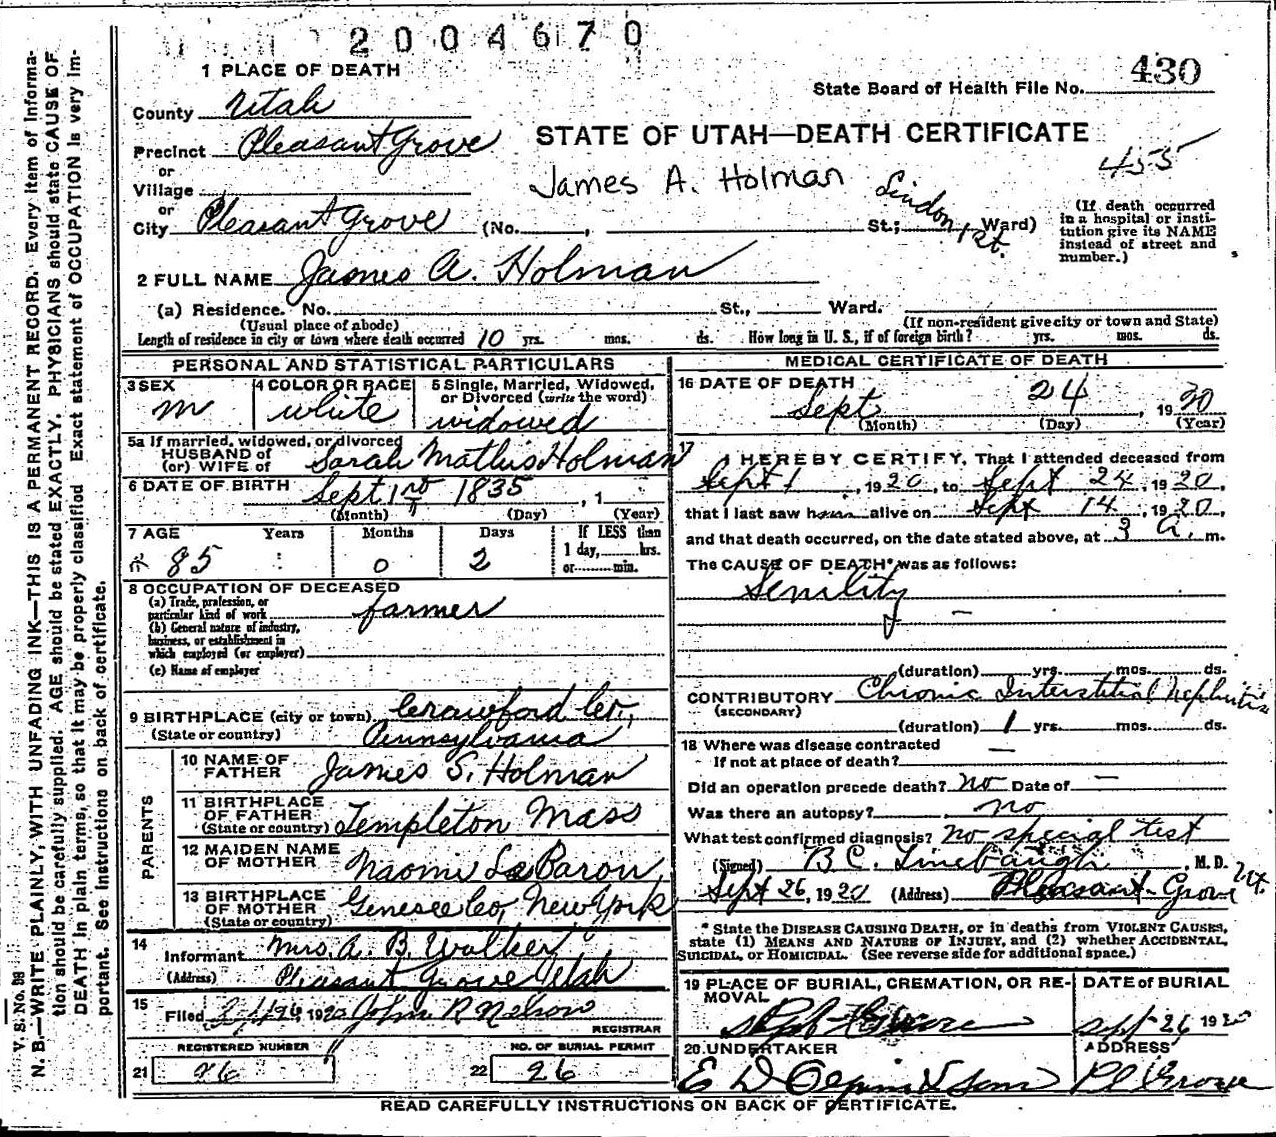 2004670
1 PLACE OF DEATH
County Utah
State Board of Health File No. 430
Precinct Pleasant Grove
STATE OF UTAH—DEATH CERTIFICATE
or
Village
James A. Holman
455
or
City Pleasant Grove (No. , St.; Lindon 1st. Ward)
(If death occurred in a hospital or insti-
tution give its NAME
instead of street and
number.)
2 FULL NAME James A. Holman
(a) Residence. No. St., Ward.
(Usual place of abode) (If non-resident give city or town and State)
Length of residence in city or town where death occurred 10 yrs. mos. ds. How long in U. S., if of foreign birth? yrs. mos. ds.
PERSONAL AND STATISTICAL PARTICULARS
3 SEX
m
4 COLOR OR RACE
white
5 Single, Married, Widowed,
or Divorced (write the word)
widowed
5a If married, widowed, or divorced
HUSBAND of
(or) WIFE of Sarah Mathis Holman
6 DATE OF BIRTH Sept 1st 1835 , 1
(Month) (Day) (Year)
7 AGE Years Months Days If LESS than
1 day, hrs.
or min.
85 0 2
8 OCCUPATION OF DECEASED
(a) Trade, profession, or
particular kind of work farmer
(b) General nature of industry,
business, or establishment in
which employed (or employer)
(c) Name of employer
9 BIRTHPLACE (city or town) Crawford Co,
(State or country) Pennsylvania
PARENTS
10 NAME OF
FATHER James S. Holman
11 BIRTHPLACE
OF FATHER
(State or country) Templeton Mass
12 MAIDEN NAME
OF MOTHER Naomi Le Baron
13 BIRTHPLACE
OF MOTHER
(State or country) Genesee Co, New York
14
Informant Mrs. A. B. Walker
(Address) Pleasant Grove Utah
15
Filed Sept 26, 1920 John P. Nelson
REGISTRAR
REGISTERED NUMBER
21 26
NO. OF BURIAL PERMIT
22 26
MEDICAL CERTIFICATE OF DEATH
16 DATE OF DEATH
Sept 24, 1920
(Month) (Day) (Year)
17
I HEREBY CERTIFY, That I attended deceased from
Sept 1, 1920, to Sept 24, 1920,
that I last saw him alive on Sept 14, 1920,
and that death occurred, on the date stated above, at 3 a. m.
The CAUSE OF DEATH* was as follows:
Senility
(duration) yrs. mos. ds.
CONTRIBUTORY Chronic Interstitial Nephritis
(SECONDARY)
(duration) 1 yrs. mos. ds.
18 Where was disease contracted
If not at place of death? —
Did an operation precede death? no Date of —
Was there an autopsy? no
What test confirmed diagnosis? no special test
(Signed) B C. Linebaugh, M. D.
Sept 26, 1920 (Address) Pleasant Grove Ut.
* State the DISEASE CAUSING DEATH, or in deaths from VIOLENT CAUSES,
state (1) MEANS AND NATURE OF INJURY, and (2) whether ACCIDENTAL,
SUICIDAL, or HOMICIDAL. (See reverse side for additional space.)
19 PLACE OF BURIAL, CREMATION, OR RE-
MOVAL
Grove
DATE OF BURIAL
Sept 26 1920
20 UNDERTAKER
E D & Sons
ADDRESS
Pl Grove
READ CAREFULLY INSTRUCTIONS ON BACK OF CERTIFICATE.
V. S. No. 98
N. B.—WRITE PLAINLY, WITH UNFADING INK—THIS IS A PERMANENT RECORD. Every item of informa-
tion should be carefully supplied. AGE should be stated EXACTLY. PHYSICIANS should state CAUSE OF
DEATH in plain terms, so that it may be properly classified. Exact statement of OCCUPATION is very im-
portant. See instructions on back of certificate.